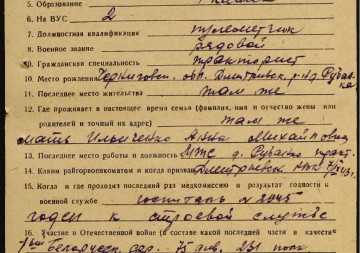 5. Образование
6. На ВУС 2
7. Должностная квалификация пулеметчик
8. Военное звание рядовой
9. Гражданская специальность тракторист
10. Место рождения Черниговс. обл. Дмитриевск. р-н д. Рубан-
ка
11. Последнее место жительства там же
12. Где проживает в настоящее время семья (фамилия, имя и отчество жены или
родителей и точный их адрес) там же
мать Ильченко Анна Михайловна
13. Последнее место работы и должность МТС д. Рубанка тракт.
14. Каким райгорвоенкоматом и когда призван Дмитриевск
15. Когда и где проходил последний раз медкомиссию и результат годности к
военной службе госпиталь № 2945
годен к строевой службе
16. Участие в Отечественной войне (в составе какой последней части в качестве
1ый Белорусск. 75 див. 231 полк